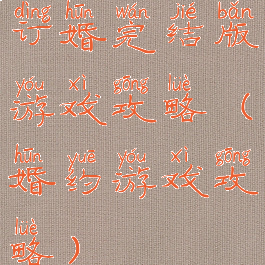 dìng hūn wán jié bǎn
订婚完结版
yóu xì gōng lüè
游戏攻略（
hūn yuē yóu xì gōng
婚约游戏攻
lüè
略）